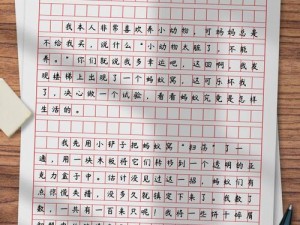 我本人非常喜欢养小动物，可妈妈总是
不给我买，说什么“小动物太脏了，不能
养。”你们就说我多幸运吧，这回啊，我发
现楼梯上出现了一个蚂蚁窝，这可乐坏我
了，决心做一个试验，看看蚂蚁究竟是怎样
生活的。
我先用小铲子把蚂蚁窝“扫荡”了一
通，用一块木板将它们转移到一个透明的亚
克力盒子中。估计没见过这一招，蚂蚁们有
点惊慌失措，没多久就镇定下来了。我数了
数，一共有一百来只呢！我将一些饼干碎屑